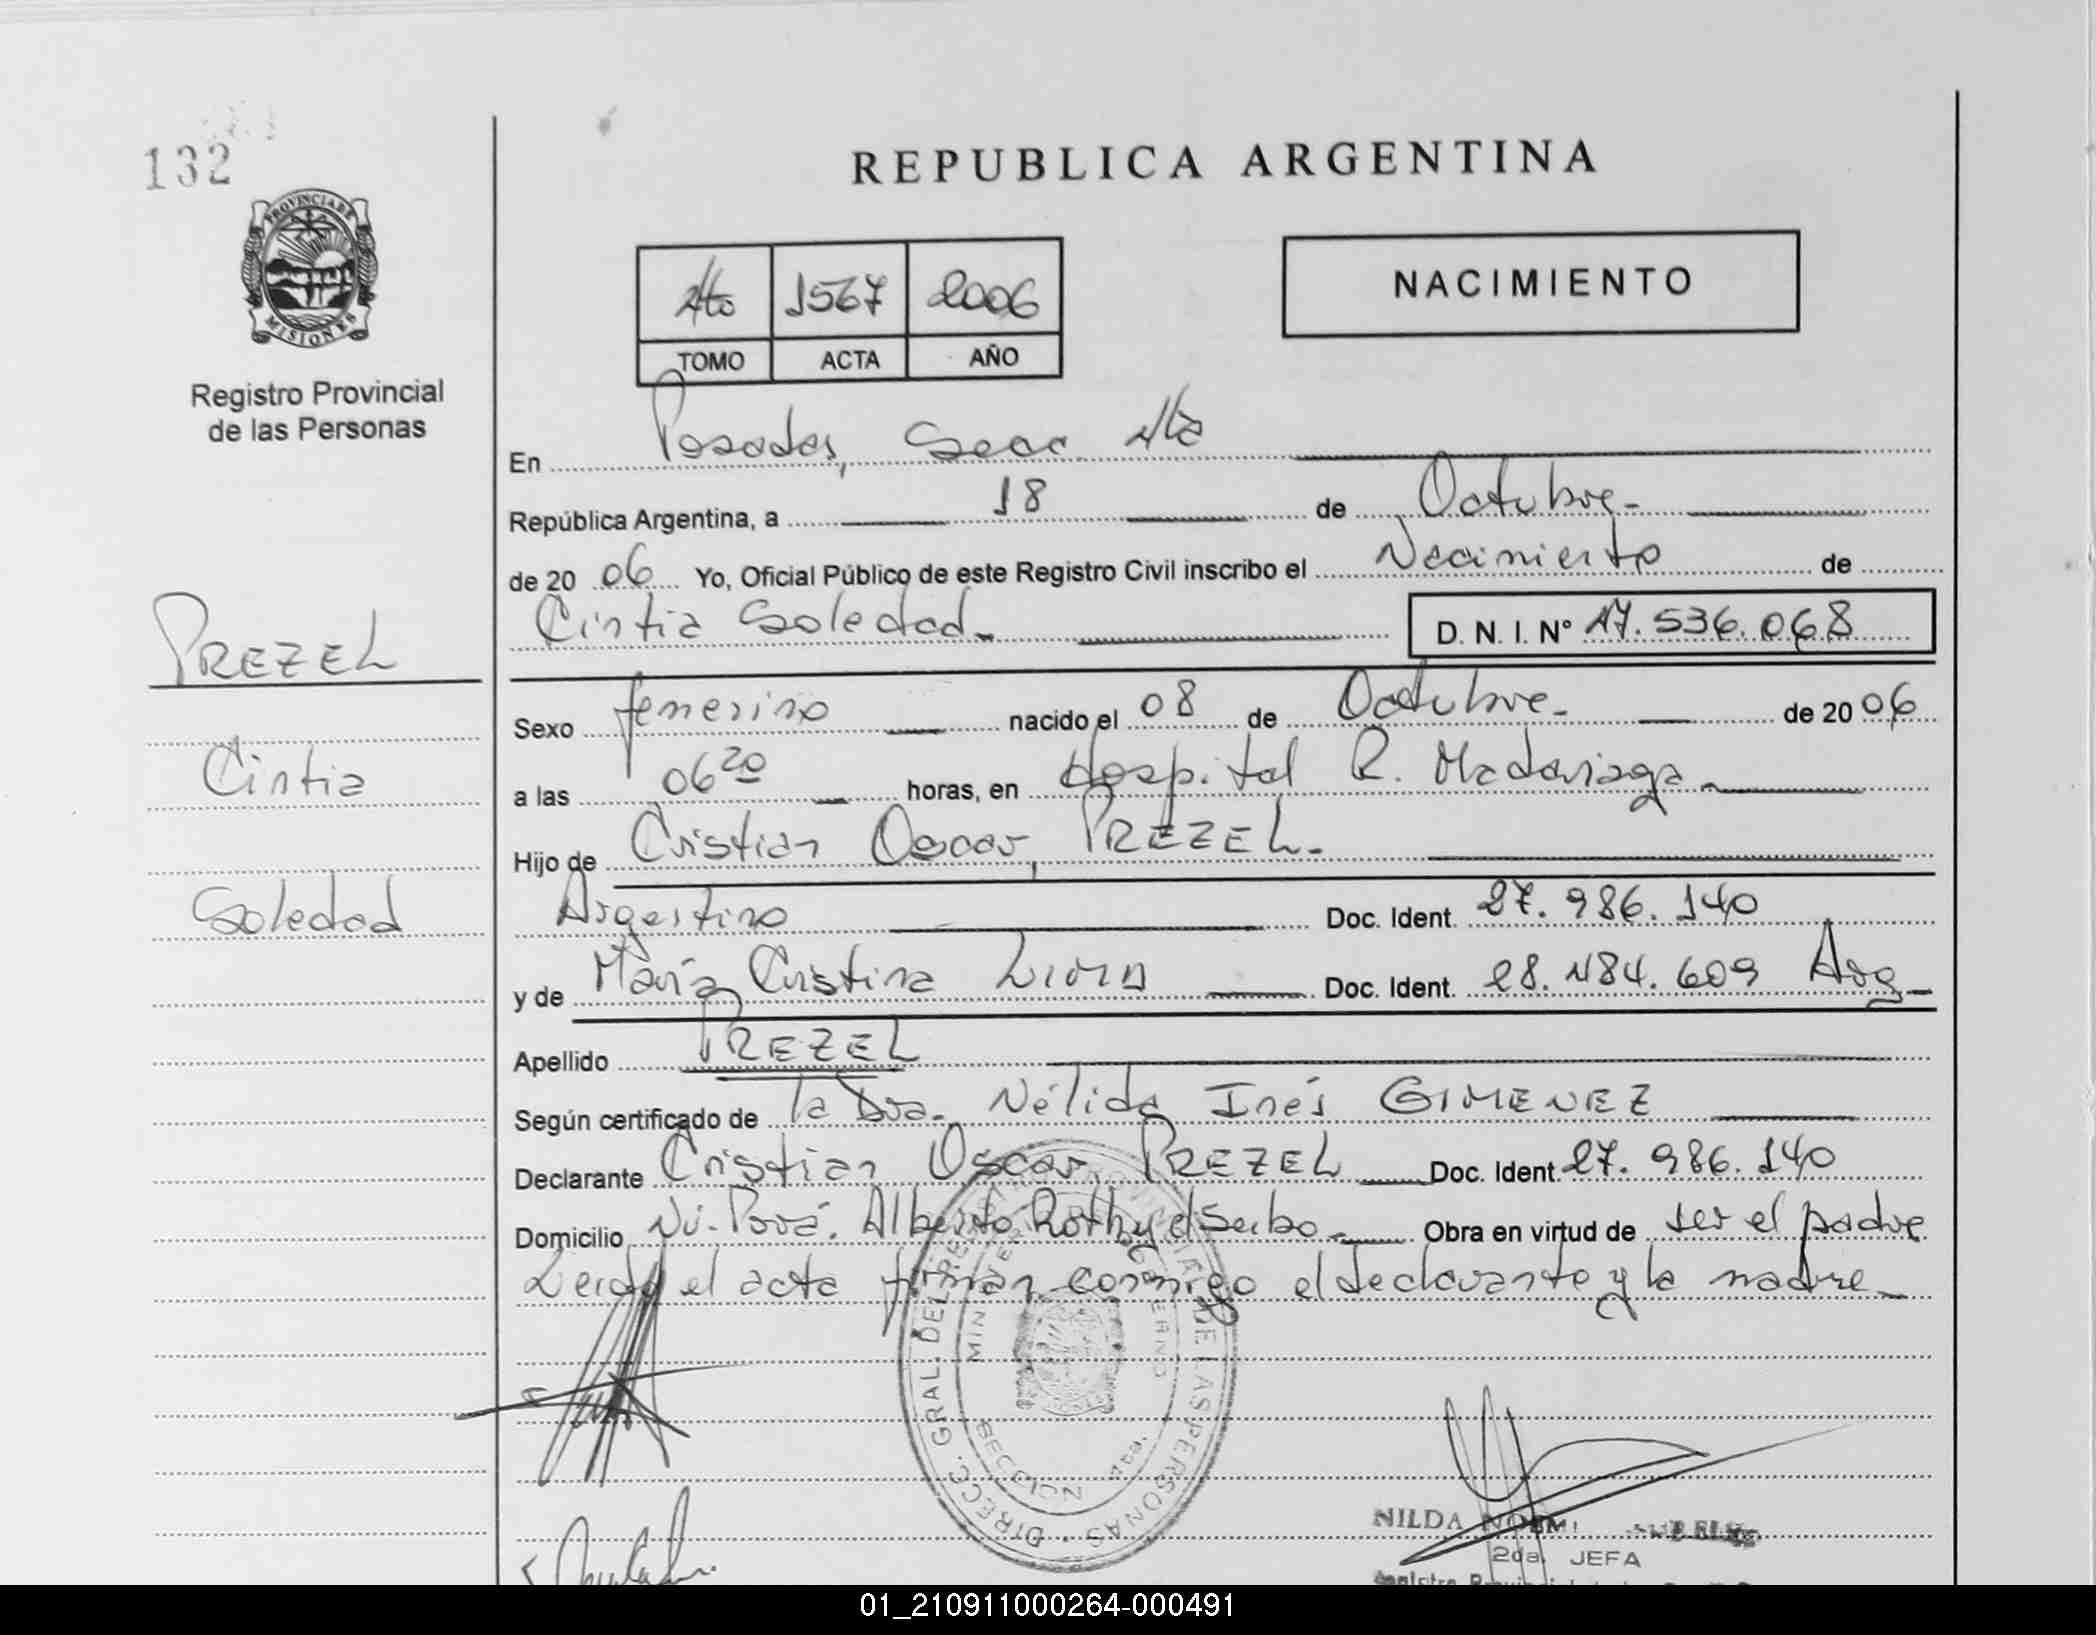 132
PROVINCIA DE
MISIONES
Registro Provincial
de las Personas
REPUBLICA ARGENTINA
4to 1567 2006
TOMO ACTA AÑO
NACIMIENTO
En Posadas, Secc. 4ta
República Argentina, a 18 de Octubre
de 20 06 Yo, Oficial Público de este Registro Civil inscribo el Nacimiento de
Cintia Soledad D. N. I. N° 47.536.068
PREZEL
Cintia
Soledad
Sexo femenino nacido el 08 de Octubre de 20 06
a las 06 20 horas, en Hospital R. Madariaga
Hijo de Cristian Oscar, PREZEL.
Argentino Doc. Ident. 27.986.140
y de María Cristina LIMA Doc. Ident. 28.484.609 Arg
Apellido PREZEL
Según certificado de la Dra. Nélida Inés GIMENEZ
Declarante Cristian Oscar PREZEL Doc. Ident. 27.986.140
Domicilio Alberto Roth y el Seibo Obra en virtud de ser el padre
Leida el acta firman conmigo el declarante y la madre
DIRECC. GRAL. DEL REG. PROVINCIAL DE LAS PERSONAS
SECCION 4ta.
NILDA NOEMI
2da. JEFA
01_210911000264-000491